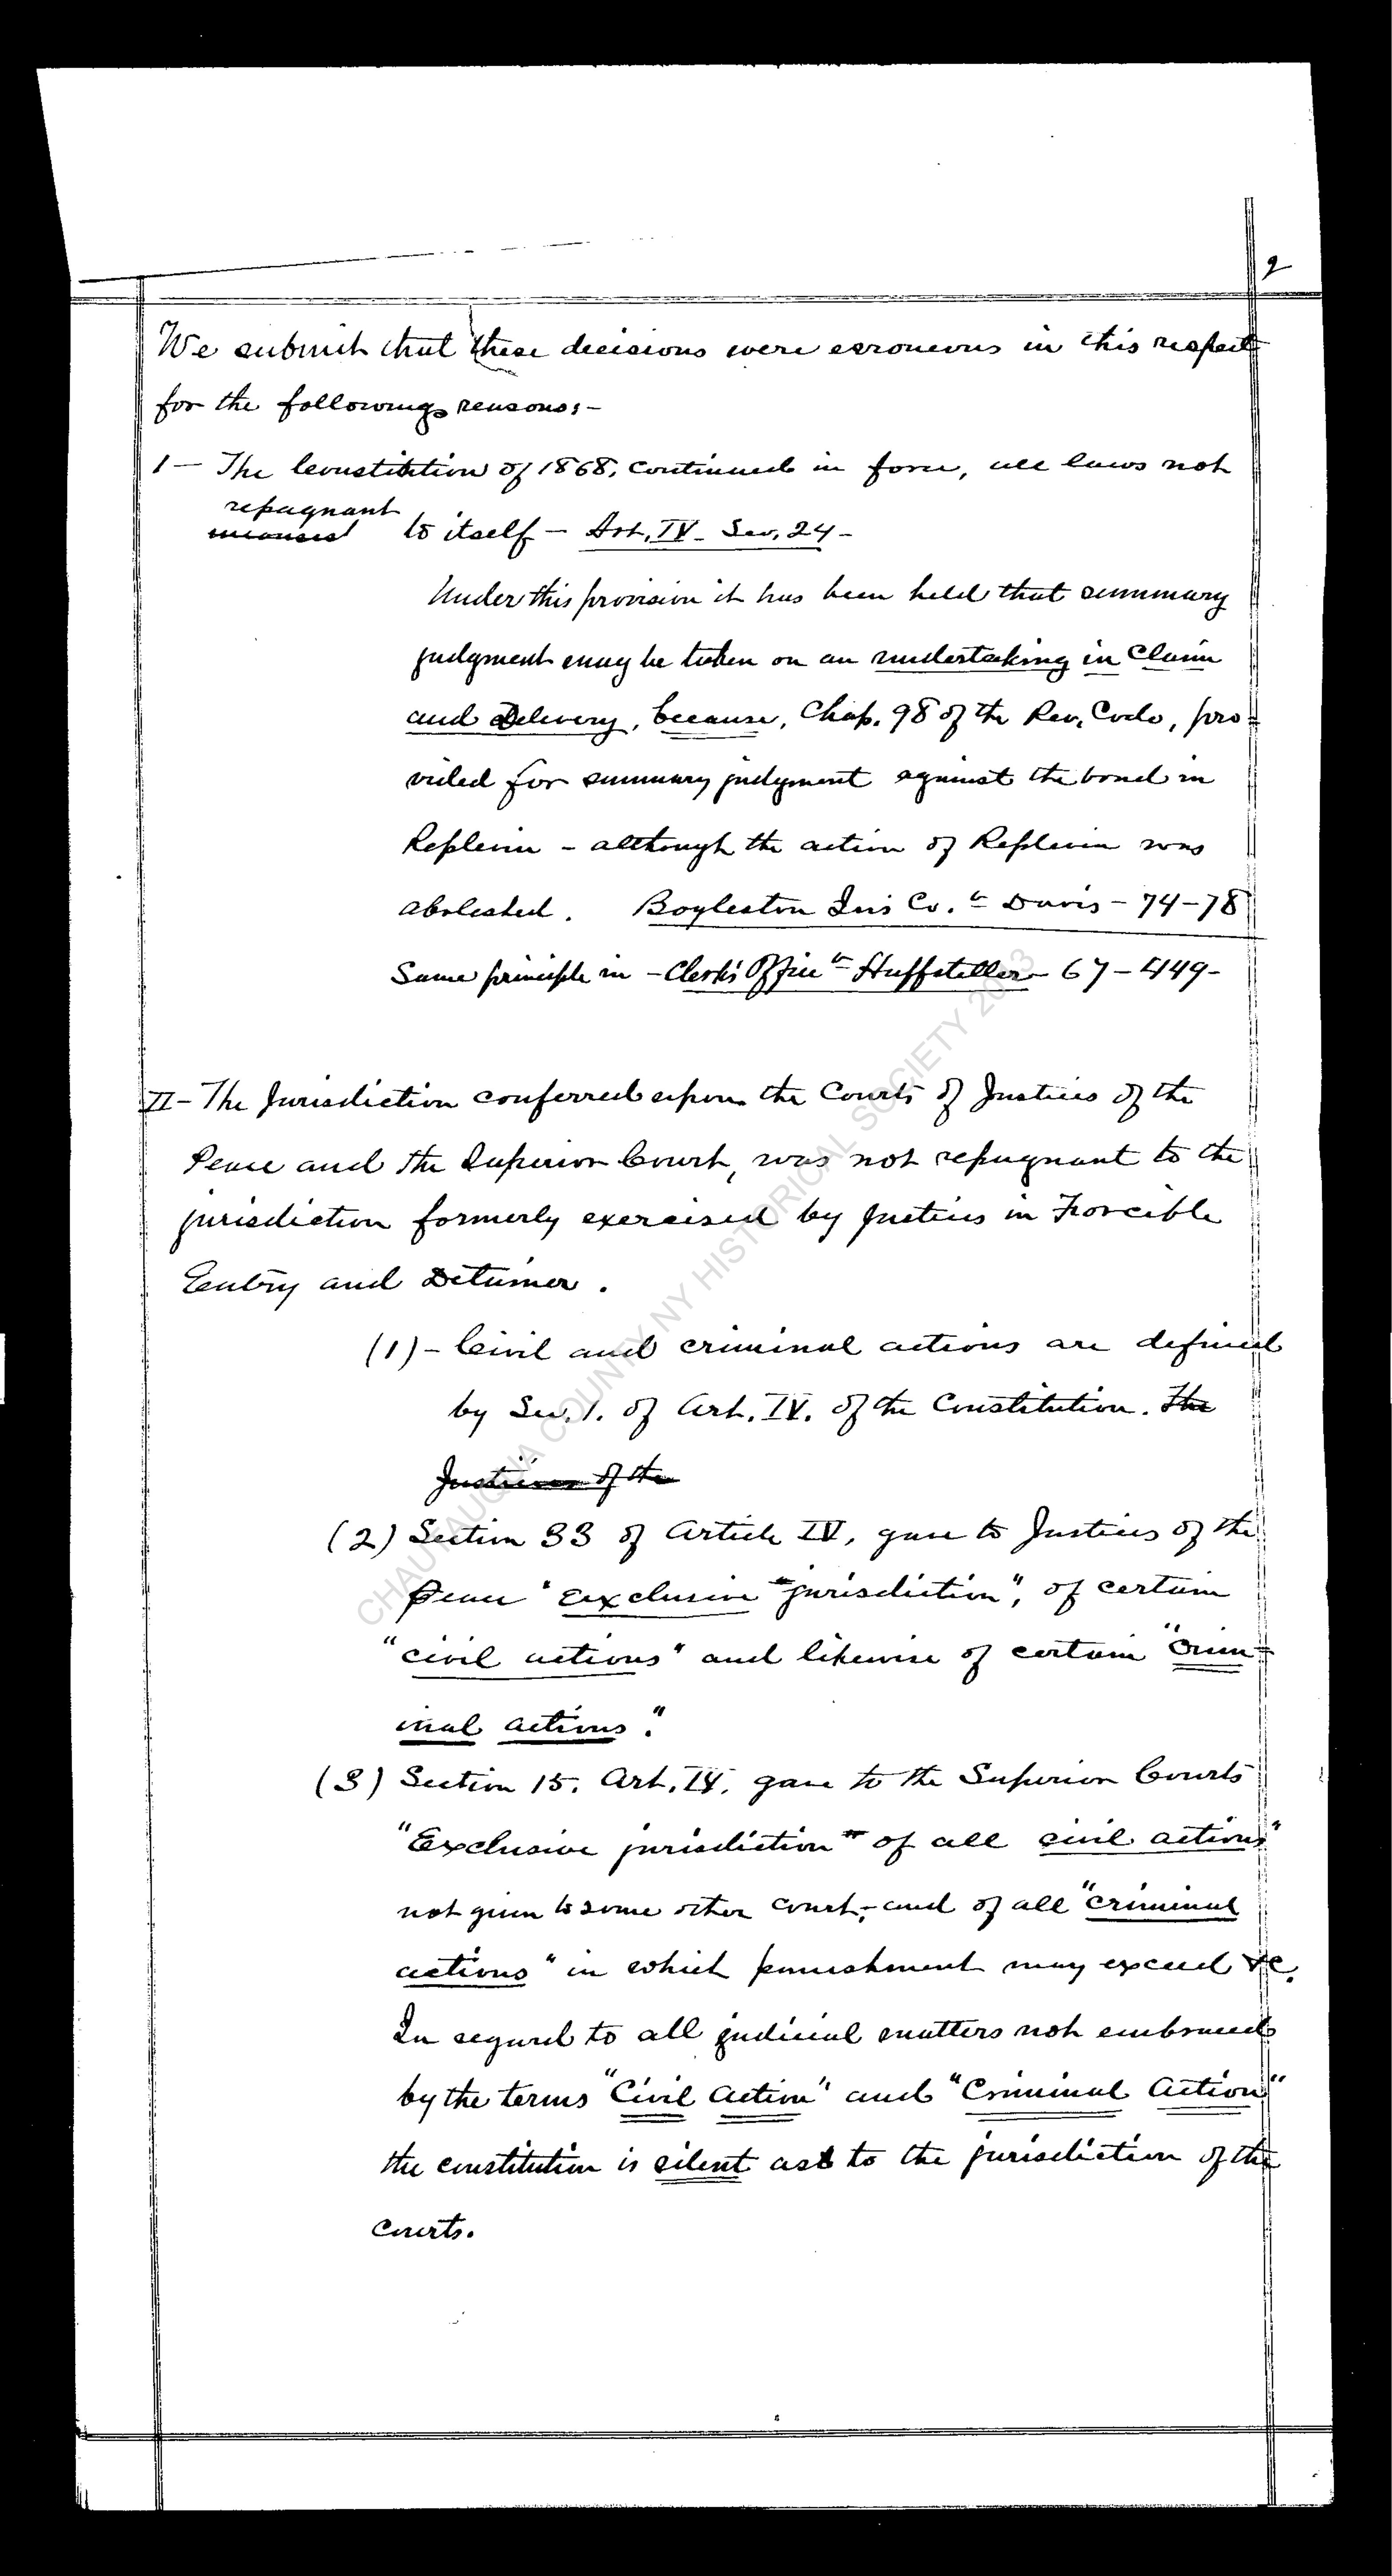 2
We submit that these decisions were erroneous in this respect
for the following reasons:-
1 - The Constitution of 1868, continued in force, all laws not
repugnant
to itself - Art, IV - Sec, 24 -
Under this provision it has been held that summary
judgment may be taken on an undertaking in Claim
and Delivery, because, Chap. 98 of the Rev, Code, pro-
vided for summary judgment against the bond in
Replevin - although the action of Replevin was
abolished. Boyleston Ins Co. vs Davis - 74-78
Same principle in - Clerk's Office vs Huffsteller - 67-449-
II - The Jurisdiction conferred upon the Courts of Justices of the
Peace and the Superior Court, was not repugnant to the
jurisdiction formerly exercised by Justices in Forcible
Entry and Detainer.
(1) - Civil and criminal actions are defined
by Sec. 1. of Art. IV. of the Constitution. The
Justices of the
(2) Section 33 of Article IV, gave to Justices of the
Peace "exclusive jurisdiction", of certain
"civil actions" and likewise of certain "crim-
inal actions".
(3) Section 15. Art. IV. gave to the Superior Courts
"Exclusive jurisdiction" of all civil actions"
not given to some other court,- and of all "criminal
actions" in which punishment may exceed &c.
In regard to all judicial matters not embraced
by the terms "Civil Action" and "Criminal Action"
the constitution is silent as to the jurisdiction of the
courts.
CHAUTAUQUA COUNTY NY HISTORICAL SOCIETY 2013